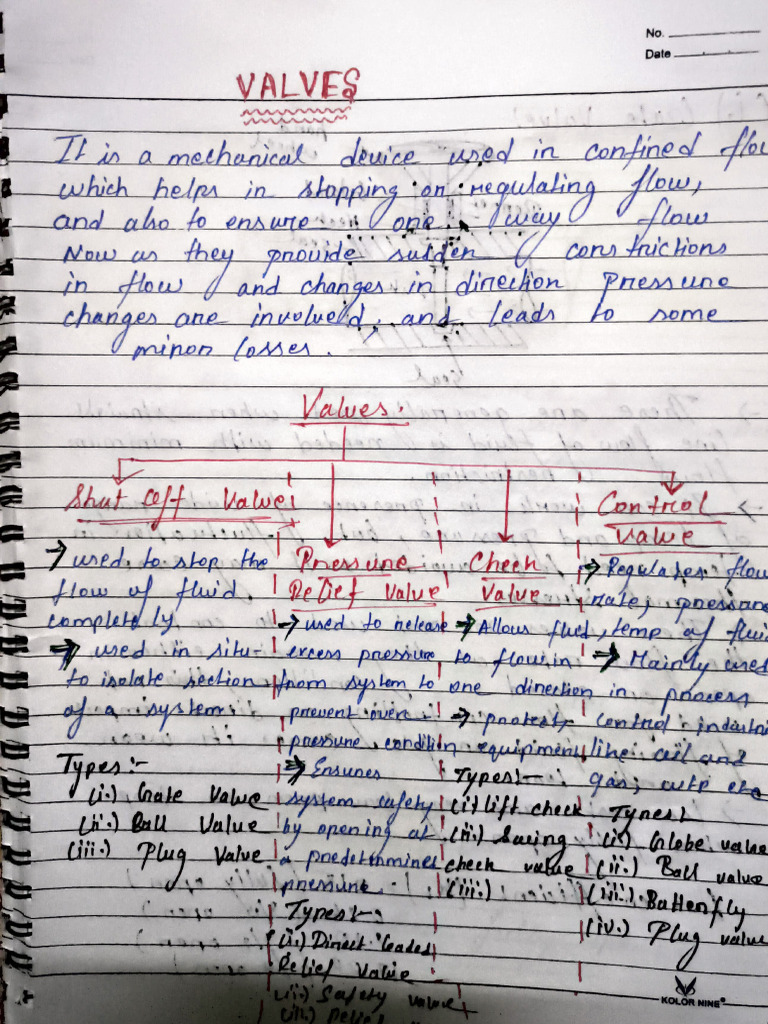 No.
Date
VALVES
It is a mechanical device used in confined flow
which helps in stopping or regulating flow,
and also to ensure one way flow
Now as they provide sudden constrictions
in flow and changes in direction pressure
changes are involved, and leads to some
minor losses.
Valves.
Shut off Valve
→ used to stop the
flow of fluid
completely.
→ used in situ-
to isolate section
of a system
Types:-
(i.) Gate Valve
(ii.) Ball Valve
(iii.) Plug Valve
Pressure
Relief Valve
→ used to release
excess pressure
from system to
prevent over
pressure condition
→ Ensures
system safety
by opening at
a predetermines
pressure.
Types:-
(i.) Direct loaded
Relief Valve
(ii.) Safety valve
(iii.) Relief
Check
Valve
→ Allows fluid
to flow in
one direction
→ protects
equipment
Types:-
(i) lift check
(ii.) Swing
check valve
(iii.)
Control
Valve
→ Regulates flow
rate, pressure
, temp of fluid
→ Mainly used
in process
control industri
like oil and
gas, wtp etc
Types:
(i) Globe valve
(ii.) Ball valve
(iii.) Butterfly
(iv.) Plug valve
KOLOR NINE